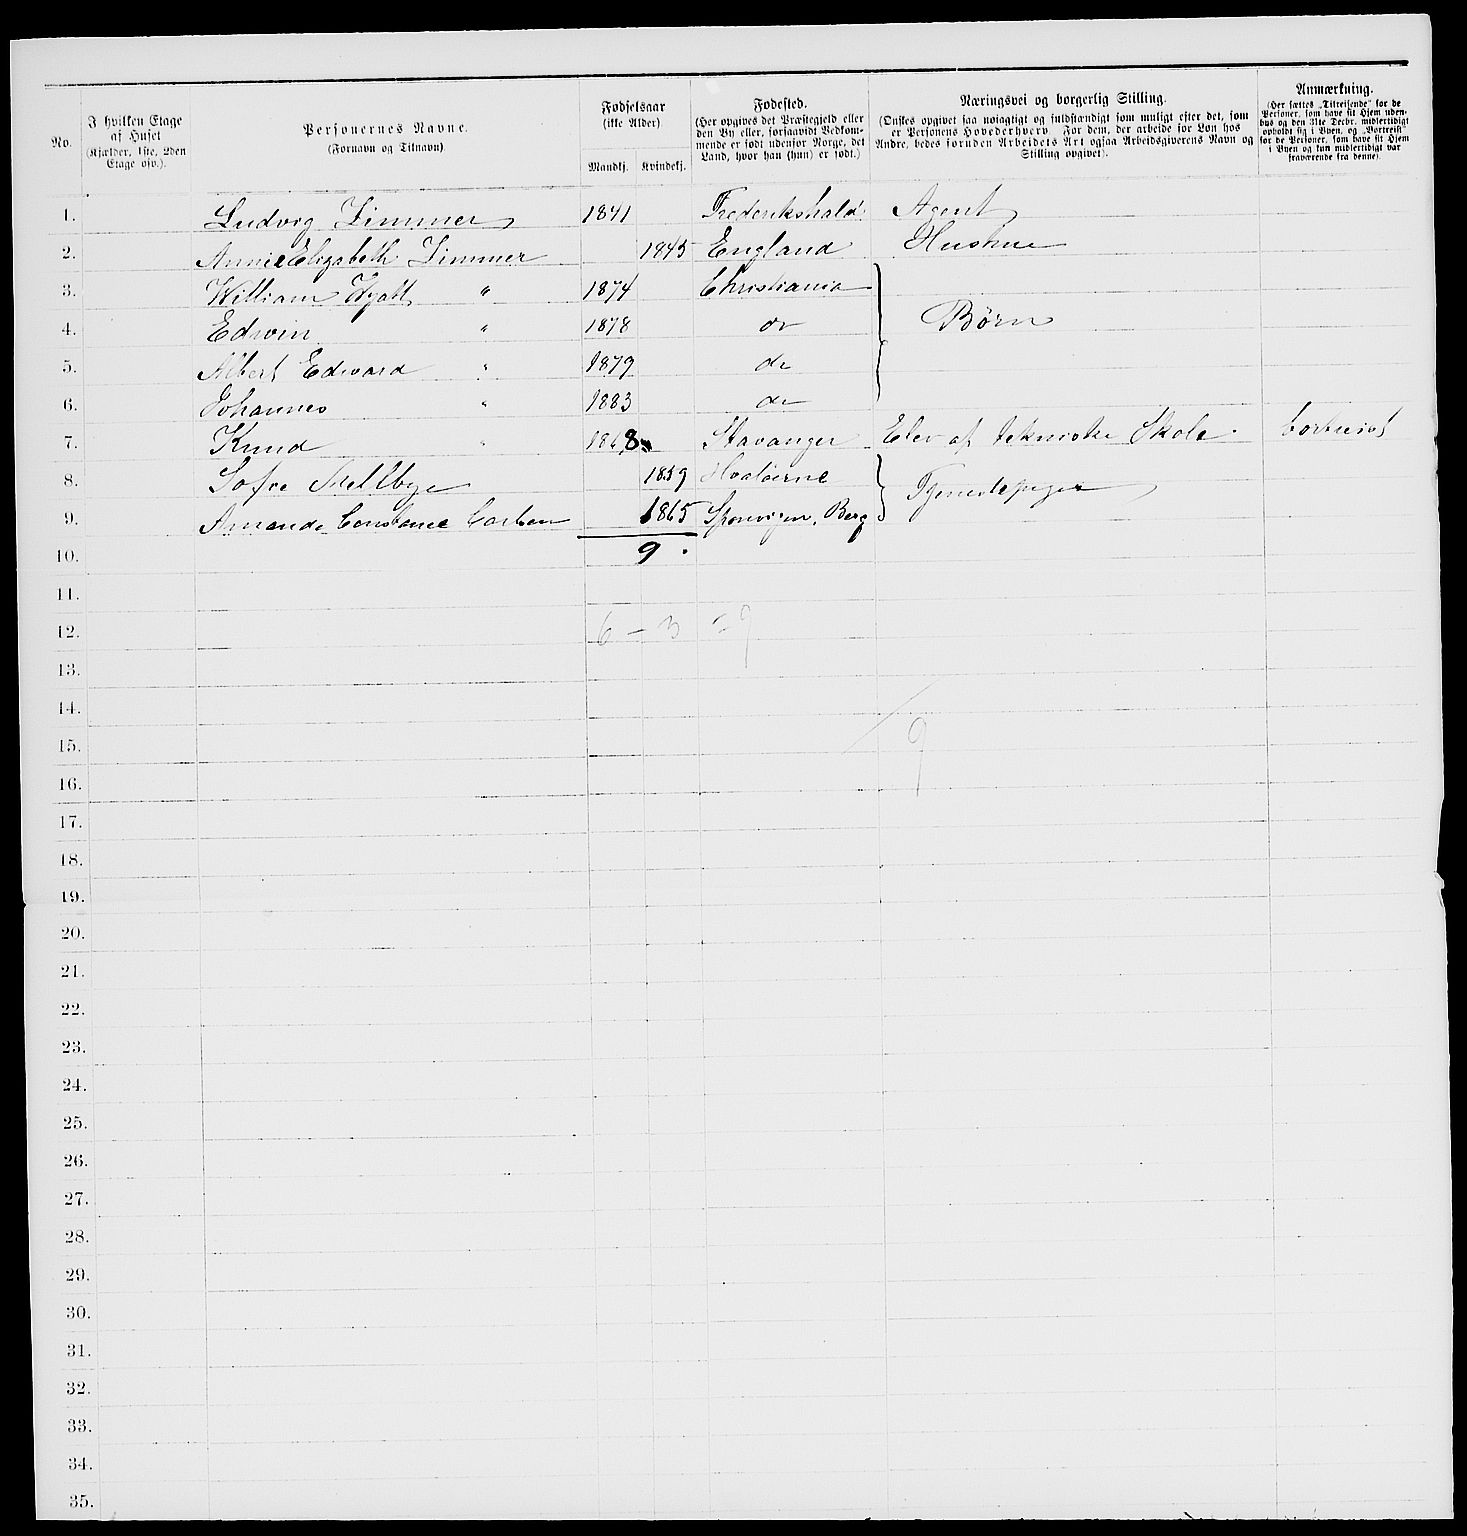 No.
I hvilken Etage af Huset (Kjælder, 1ste, 2den Etage osv.).
Personernes Navne. (Fornavn og Tilnavn)
Fødselsaar (ikke Alder)
Mandkj. Kvindekj.
Fødested. (Her opgives det Præstegjeld eller den By eller, forsaavidt Vedkommende er født udenfor Norge, det Land, hvor han (hun) er født.)
Næringsvei og borgerlig Stilling. (Ønskes opgivet saa nøiagtigt og fuldstændigt som muligt efter det, som er Personens Hovederhverv. For dem, der arbeide for Løn hos Andre, bedes foruden Arbeidets Art ogsaa Arbeidsgiverens Navn og Stilling opgivet).
Anmærkning. (Her sættes „Tilreisende" for de Personer, som have sit Hjem udenbys og den 31te Decbr. midlertidigt opholdt sig i Byen, og „Bortreist" for de Personer, som have sit Hjem i Byen og kun midlertidigt var fraværende fra denne).
1. Ludvig Zimmer 1841 Frederikshald Agent
2. Annie Elizabeth Zimmer 1845 England Hustrue
3. William Wyatt " 1874 Christiania
4. Edwin " 1878 do Børn
5. Albert Edward " 1879 do
6. Johannes " 1883 do
7. Knud " 1868 Stavanger Elev af tekniske Skole bortreist
8. Sofie Mellbye 1859 Hvaløerne Tjenestepiger
9. Amanda Constance Carlsen 1865 Sponvigen, Berg
10. 9.
11.
12. 6 – 3 = 9
13.
14.
15. 9
16.
17.
18.
19.
20.
21.
22.
23.
24.
25.
26.
27.
28.
29.
30.
31.
32.
33.
34.
35.